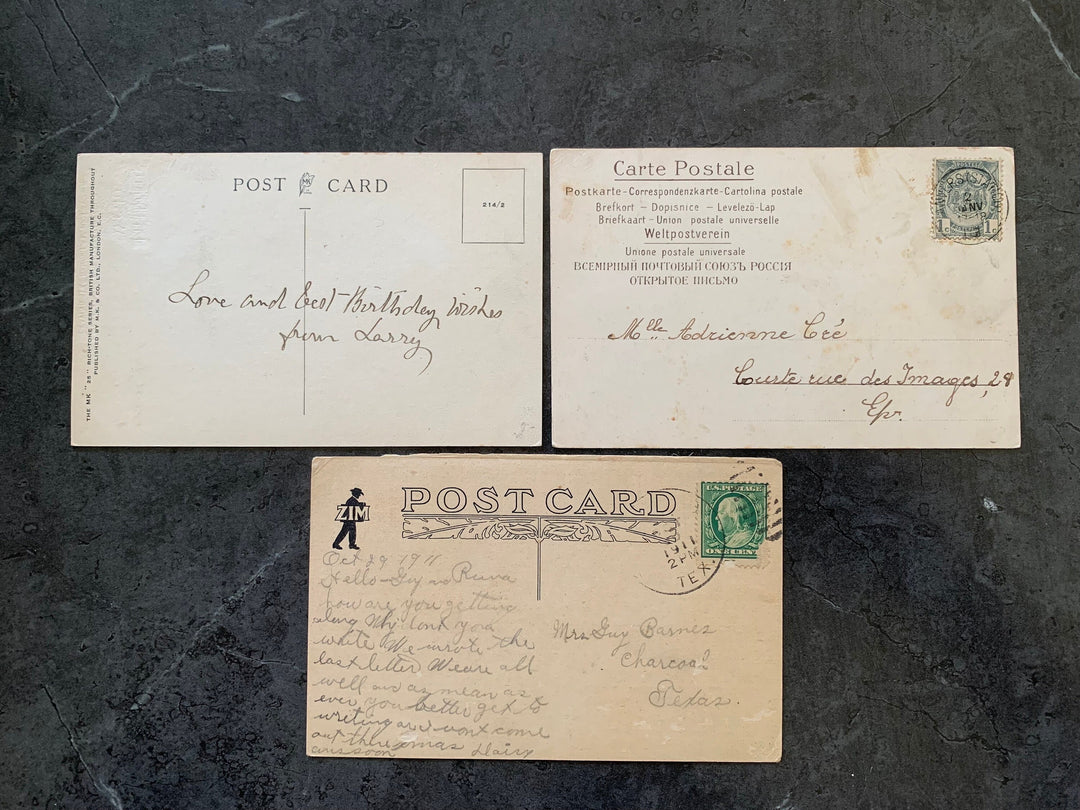 THE "MK" "25" RICH-TONE SERIES, BRITISH MANUFACTURE THROUGHOUT
PUBLISHED BY M.K. & CO. LTD., LONDON, E.C.
POST CARD
214/2
Love and best Birthday Wishes
from Larry
Carte Postale
Postkarte - Correspondenzkarte - Cartolina postale
Brefkort - Dopisnice - Levelező-Lap
Briefkaart - Union postale universelle
Weltpostverein
Unione postale universale
ВСЕМІРНЫЙ ПОЧТОВЫЙ СОЮЗЪ РОССІЯ
ОТКРЫТОЕ ПИСЬМО
1c 1c
Mlle Adrienne
Courte rue des Images, 28
Epr.
ZIM
POST CARD
U.S. POSTAGE
ONE CENT
1911
2 PM
TEX.
Oct 29 1911
Hello Guy
how are you getting
along Why dont you
write We wrote the
last letter We are all
well and as mean as
ever you better get to
writing or I wont come
out there xmas Daisy
ans soon
Mrs Guy Barnes
Charcoal
Texas.